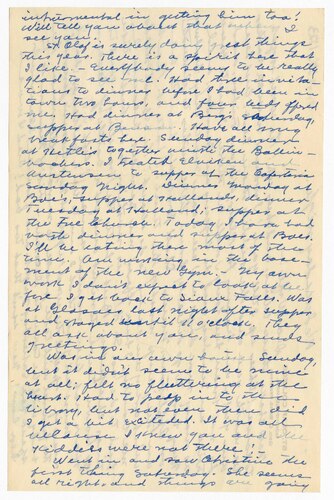 instrumental in getting him too!
Will tell you about that when I
see you.
St Olaf is surely doing great things
this year. There is a spirit here that
I like - Everybody seems to be really
glad to see you. Had three invita-
tions to dinner before I had been in
town two hours, and four beds offered
me. Had dinner at Berg's Saturday,
supper at Have all my
breakfasts here Sunday dinner
at together with the
I treated
to supper at the Cafeteria
Sunday Night. Dinner Monday at
Boe's, supper at Hollands, dinner
Tuesday at Holland; supper at
the Church. Today I have had
both dinner and supper at Boes.
I'll be eating there most of the
time. Am working in the base-
ment of the new Gym. - My own
work I don't expect to look at be
fore I get back to Sioux Falls. Was
at Glasoes last night after supper
and stayed until 11 o'clock. They
all ask about you, and send
greetings.
Was in our own house Sunday,
but it didn't seem to be mine
at all; felt no fluttering at the
heart. Had to peep in to the
library, but not even then did
I get a bit excited. It was all
because I knew you and the
Kiddies were not there.
Went in and saw Christine the
first thing Saturday. She seems
all right and things are going